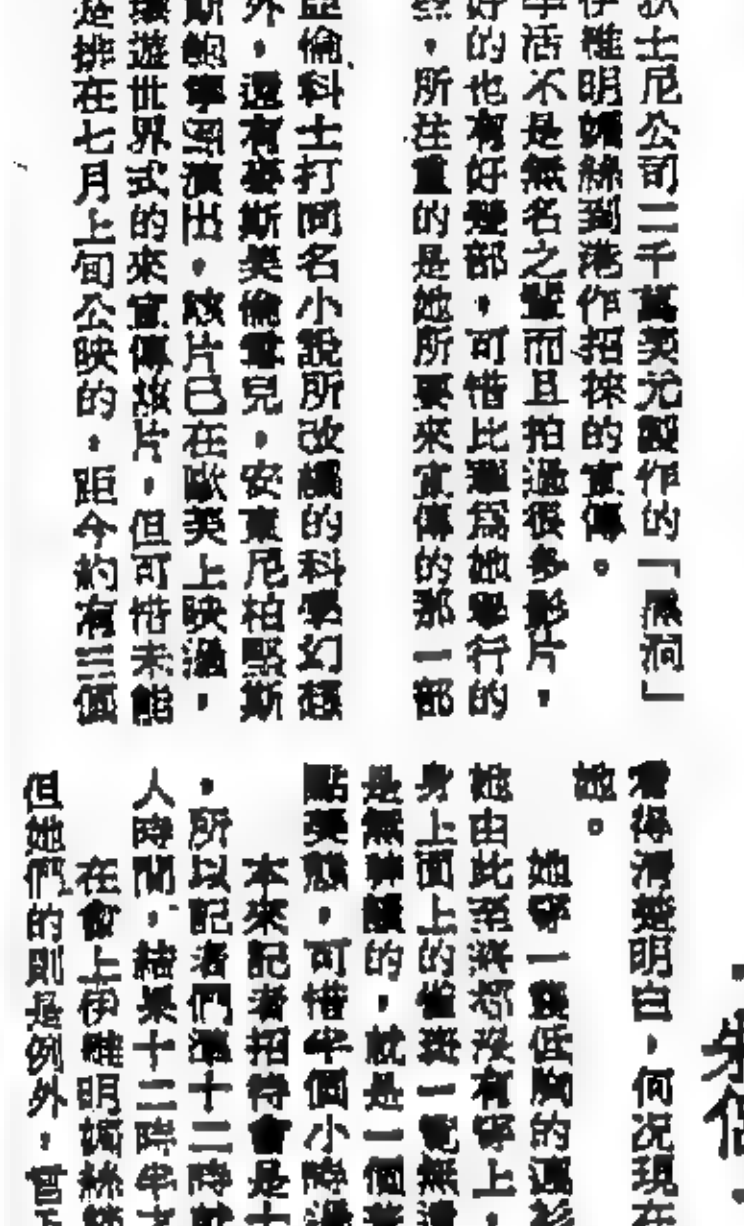 狄士尼公司二千萬美元製作的「黑洞」
伊雉明媚絲到港作招徠的宣傳。
生活不是無名之輩而且拍過很多影片，
好的也有好幾部，可惜比壐為她舉行的
然，所注重的是她所要來宣傳的那一部
亞倫科士打同名小說所改編的科學幻想
外，還有麥斯美倫雪兒，安東尼柏堅斯
斯鮑寧因演出，該片已在歐美上映過，
環遊世界式的來宣傳該片，但可惜未能
是排在七月上旬公映的，距今約有三個
看得清楚明白，何况現在
她。
她穿一襲低胸的
她由此至終都沒有穿上，
身上面上的雀斑一覽無遺
是無神韻的，就是一個
點美態，可惜半個小時過
本來記者招待會是十
，所以記者們準十二時
人時間，結果十二時半才
在會上伊雉明媚絲
但她們的則是例外，曾